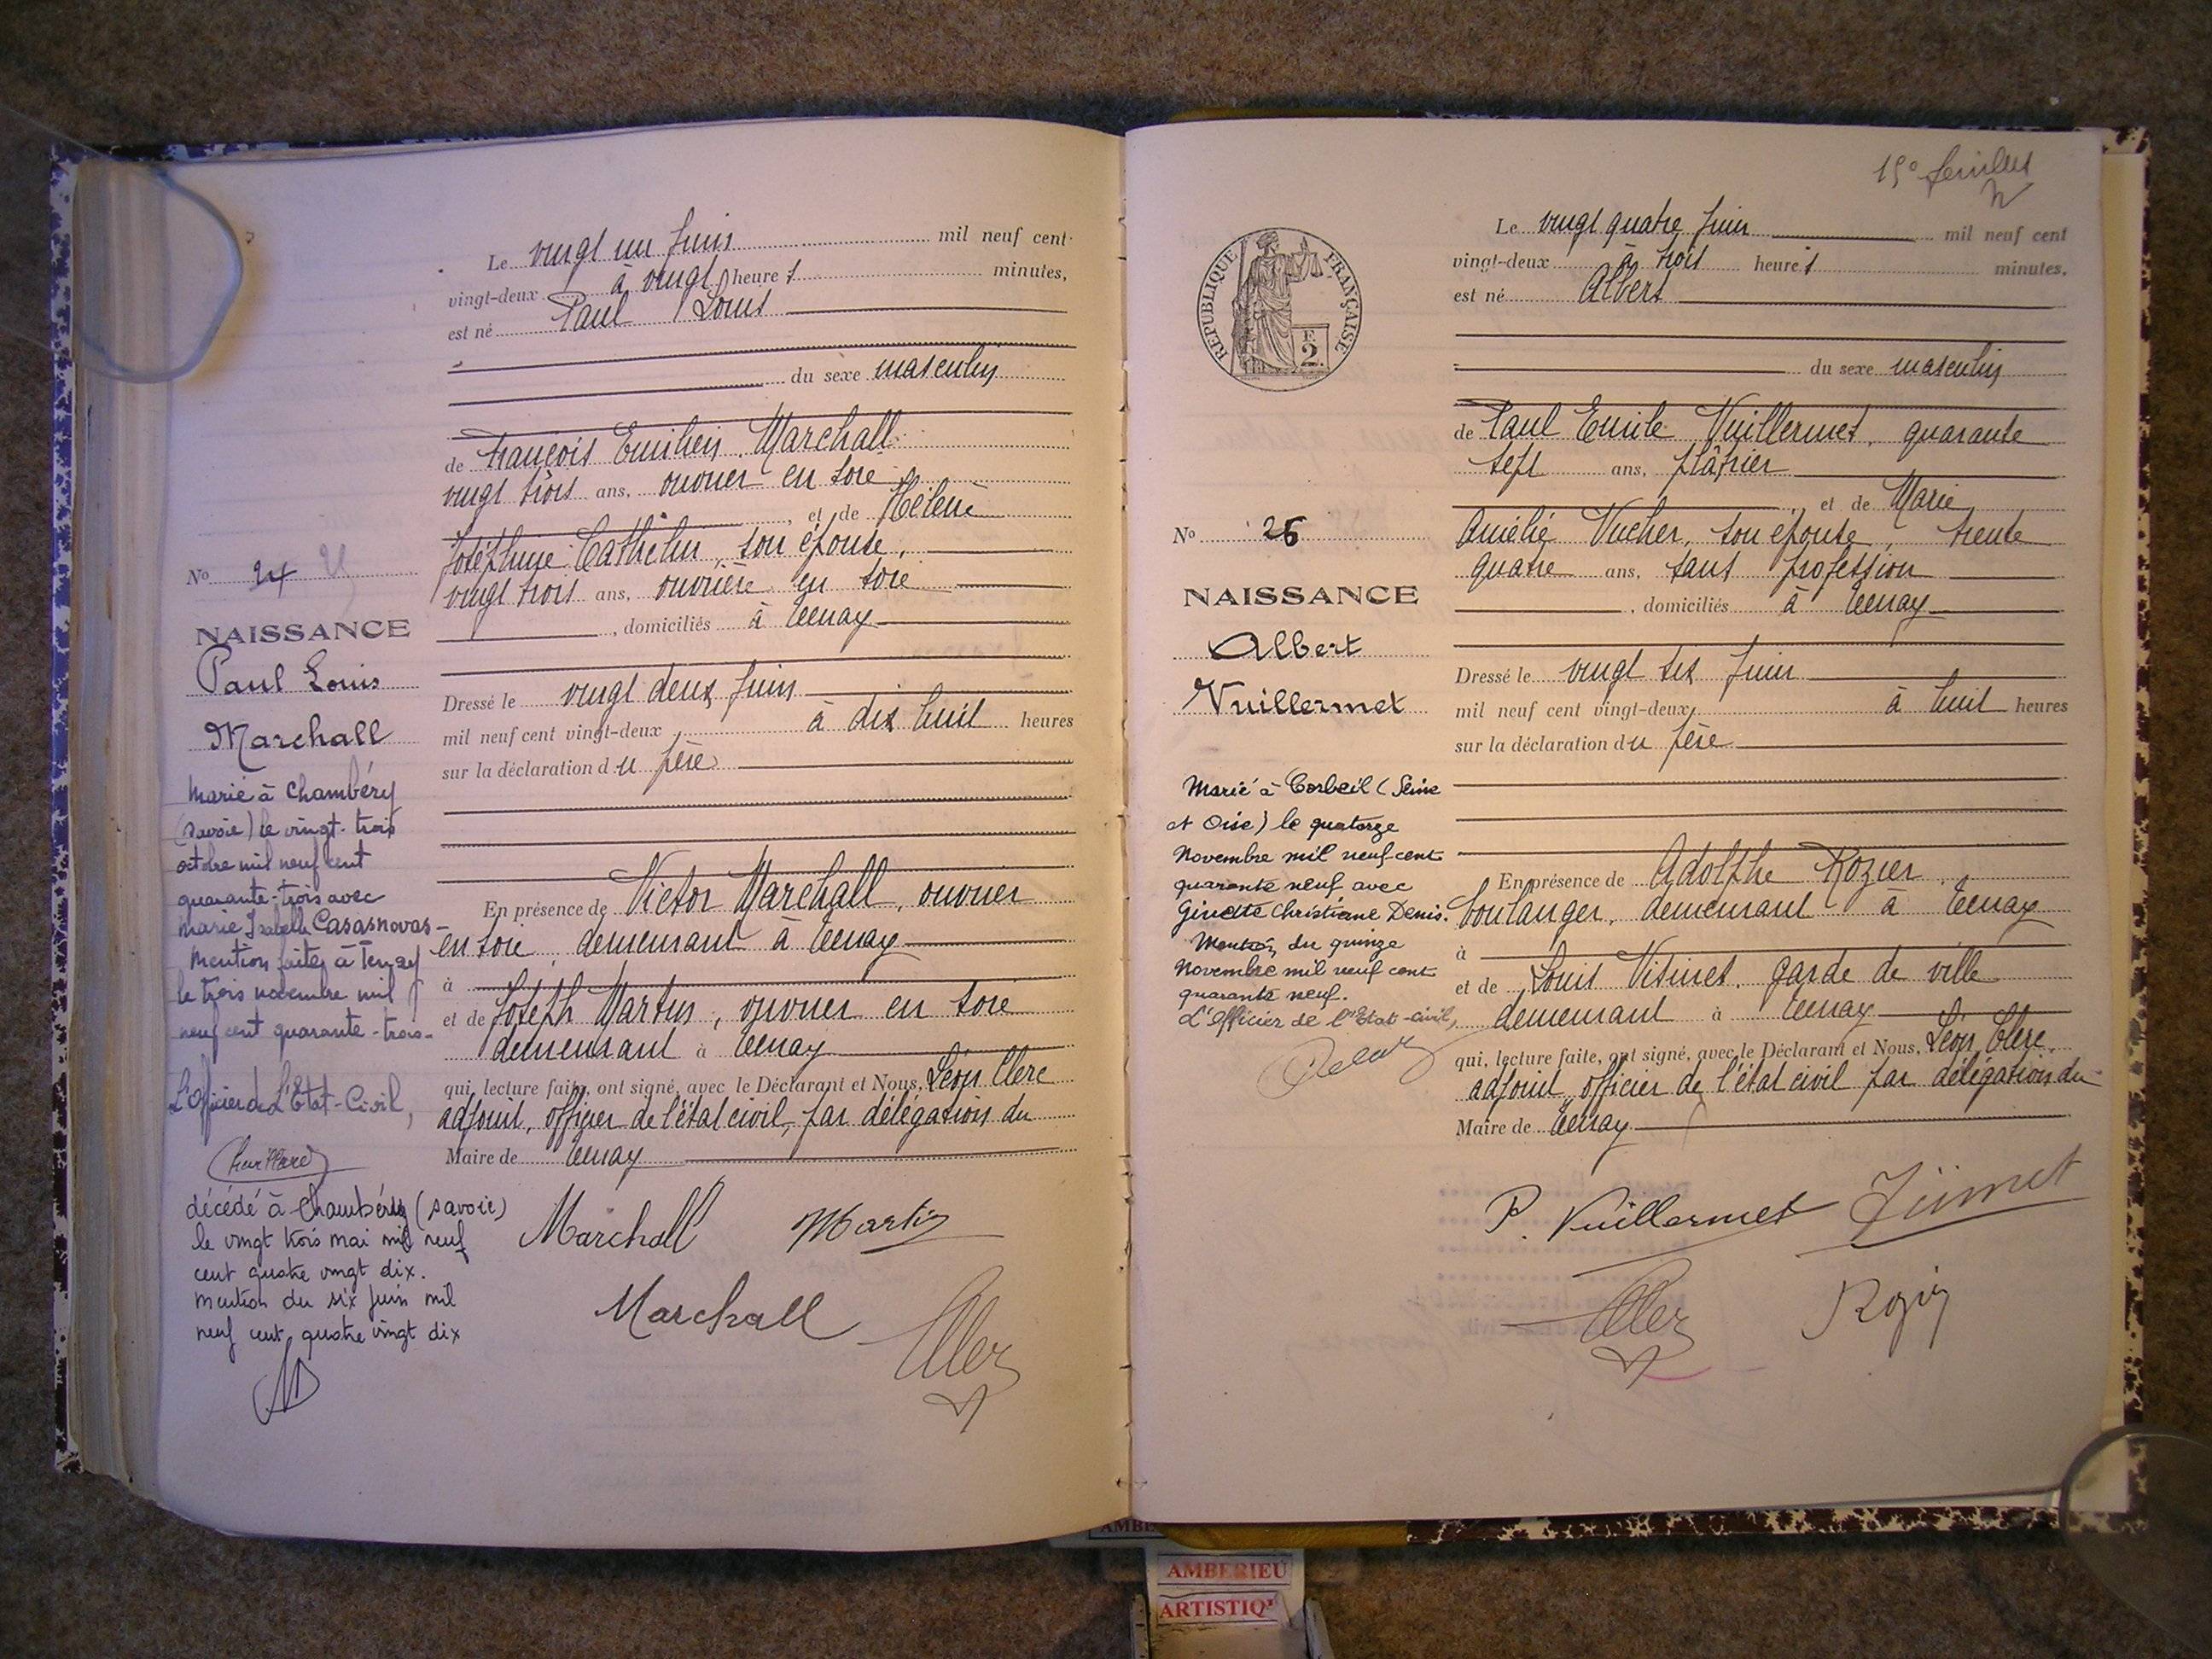 Le vingt un juin mil neuf cent
vingt-deux à vingt heures minutes,
est né Paul Louis
du sexe masculin
de François Emilien Marchall
vingt trois ans, ouvrier en soie
et de Hélène
Joséphine Cathelin, son épouse,
vingt trois ans, ouvrière en soie
, domiciliés à Tenay
Dressé le vingt deux juin
mil neuf cent vingt-deux, à dix huit heures
sur la déclaration du père
En présence de Victor Marchall, ouvrier
en soie, demeurant à Tenay
à
et de Joseph Martin, ouvrier en soie
demeurant à Tenay
qui, lecture faite, ont signé, avec le Déclarant et Nous, Léon Clerc
adjoint, officier de l'état civil, par délégation du
Maire de Tenay
Marchall Martin
Marchall
No 24
NAISSANCE
Paul Louis
Marchall
Marié à Chambéry
(Savoie) le vingt-trois
octobre mil neuf cent
quarante-trois avec
Marie Isabelle Casasnovas-
Mention faite à Tenay
le trois novembre mil
neuf cent quarante-trois-
L'Officier de L'Etat-Civil,
décédé à Chambéry (Savoie)
le vingt trois mai mil neuf
cent quatre vingt dix.
Mention du six juin mil
neuf cent quatre vingt dix
15e feuillet
RÉPUBLIQUE FRANÇAISE
F
2.
Le vingt quatre juin mil neuf cent
vingt-deux à trois heures minutes,
est né Albert
du sexe masculin
de Paul Emile Vuillermet, quarante
sept ans, plâtrier
, et de Marie
Amélie Vucher, son épouse, trente
quatre ans, sans profession
, domiciliés à Tenay
Dressé le vingt six juin
mil neuf cent vingt-deux, à huit heures
sur la déclaration du père
En présence de Adolphe Rozier
boulanger, demeurant à Tenay
à
et de Louis garde de ville
demeurant à Tenay
qui, lecture faite, ont signé, avec le Déclarant et Nous, Léon Clerc,
adjoint, officier de l'état civil par délégation du
Maire de Tenay
P. Vuillermet
No 25
NAISSANCE
Albert
Vuillermet
Marié à Corbeil (Seine
et Oise) le quatorze
Novembre mil neuf cent
quarante neuf avec
Ginette Christiane Denis.
Mention du quinze
Novembre mil neuf cent
quarante neuf.
L'Officier de l'Etat-civil,
AMBERIEU
ARTISTIQ